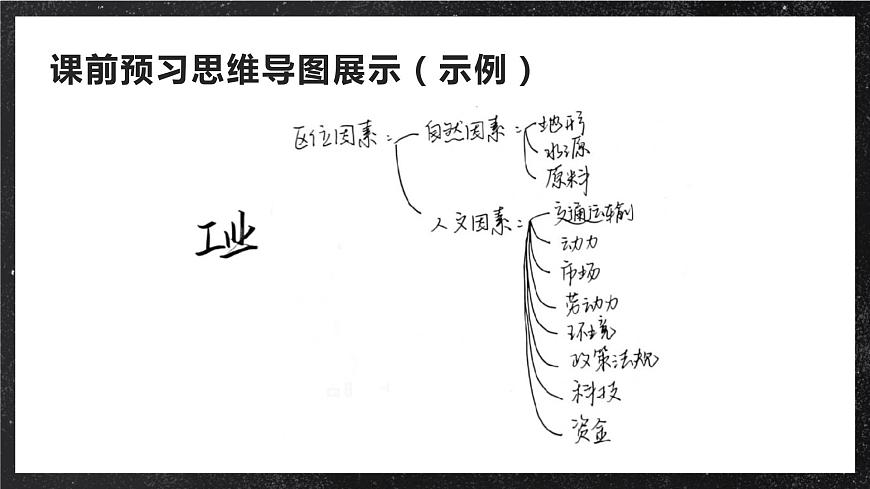 课前预习思维导图展示（示例）
区位因素：
自然因素：
地形
水源
原料
工业
人文因素：
交通运输
动力
市场
劳动力
环境
政策法规
科技
资金